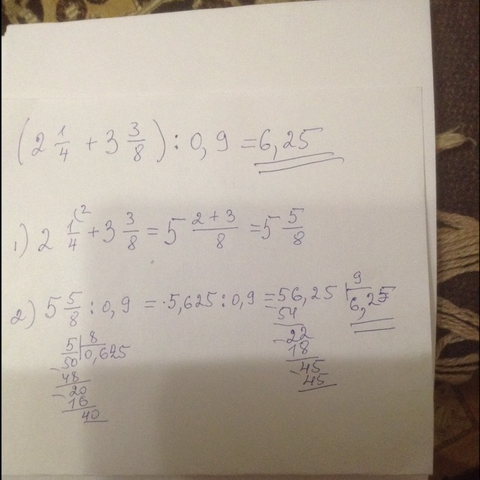 (2 1/4 + 3 3/8) : 0,9 = 6,25
1) 2 1/4 (2 + 3 3/8 = 5 2+3/8 = 5 5/8
2) 5 5/8 : 0,9 = 5,625 : 0,9 = 56,25 | 9
54 6,25
5 | 8 - 22
50 0,625 18
- 48 - 45
- 20 45
16
40